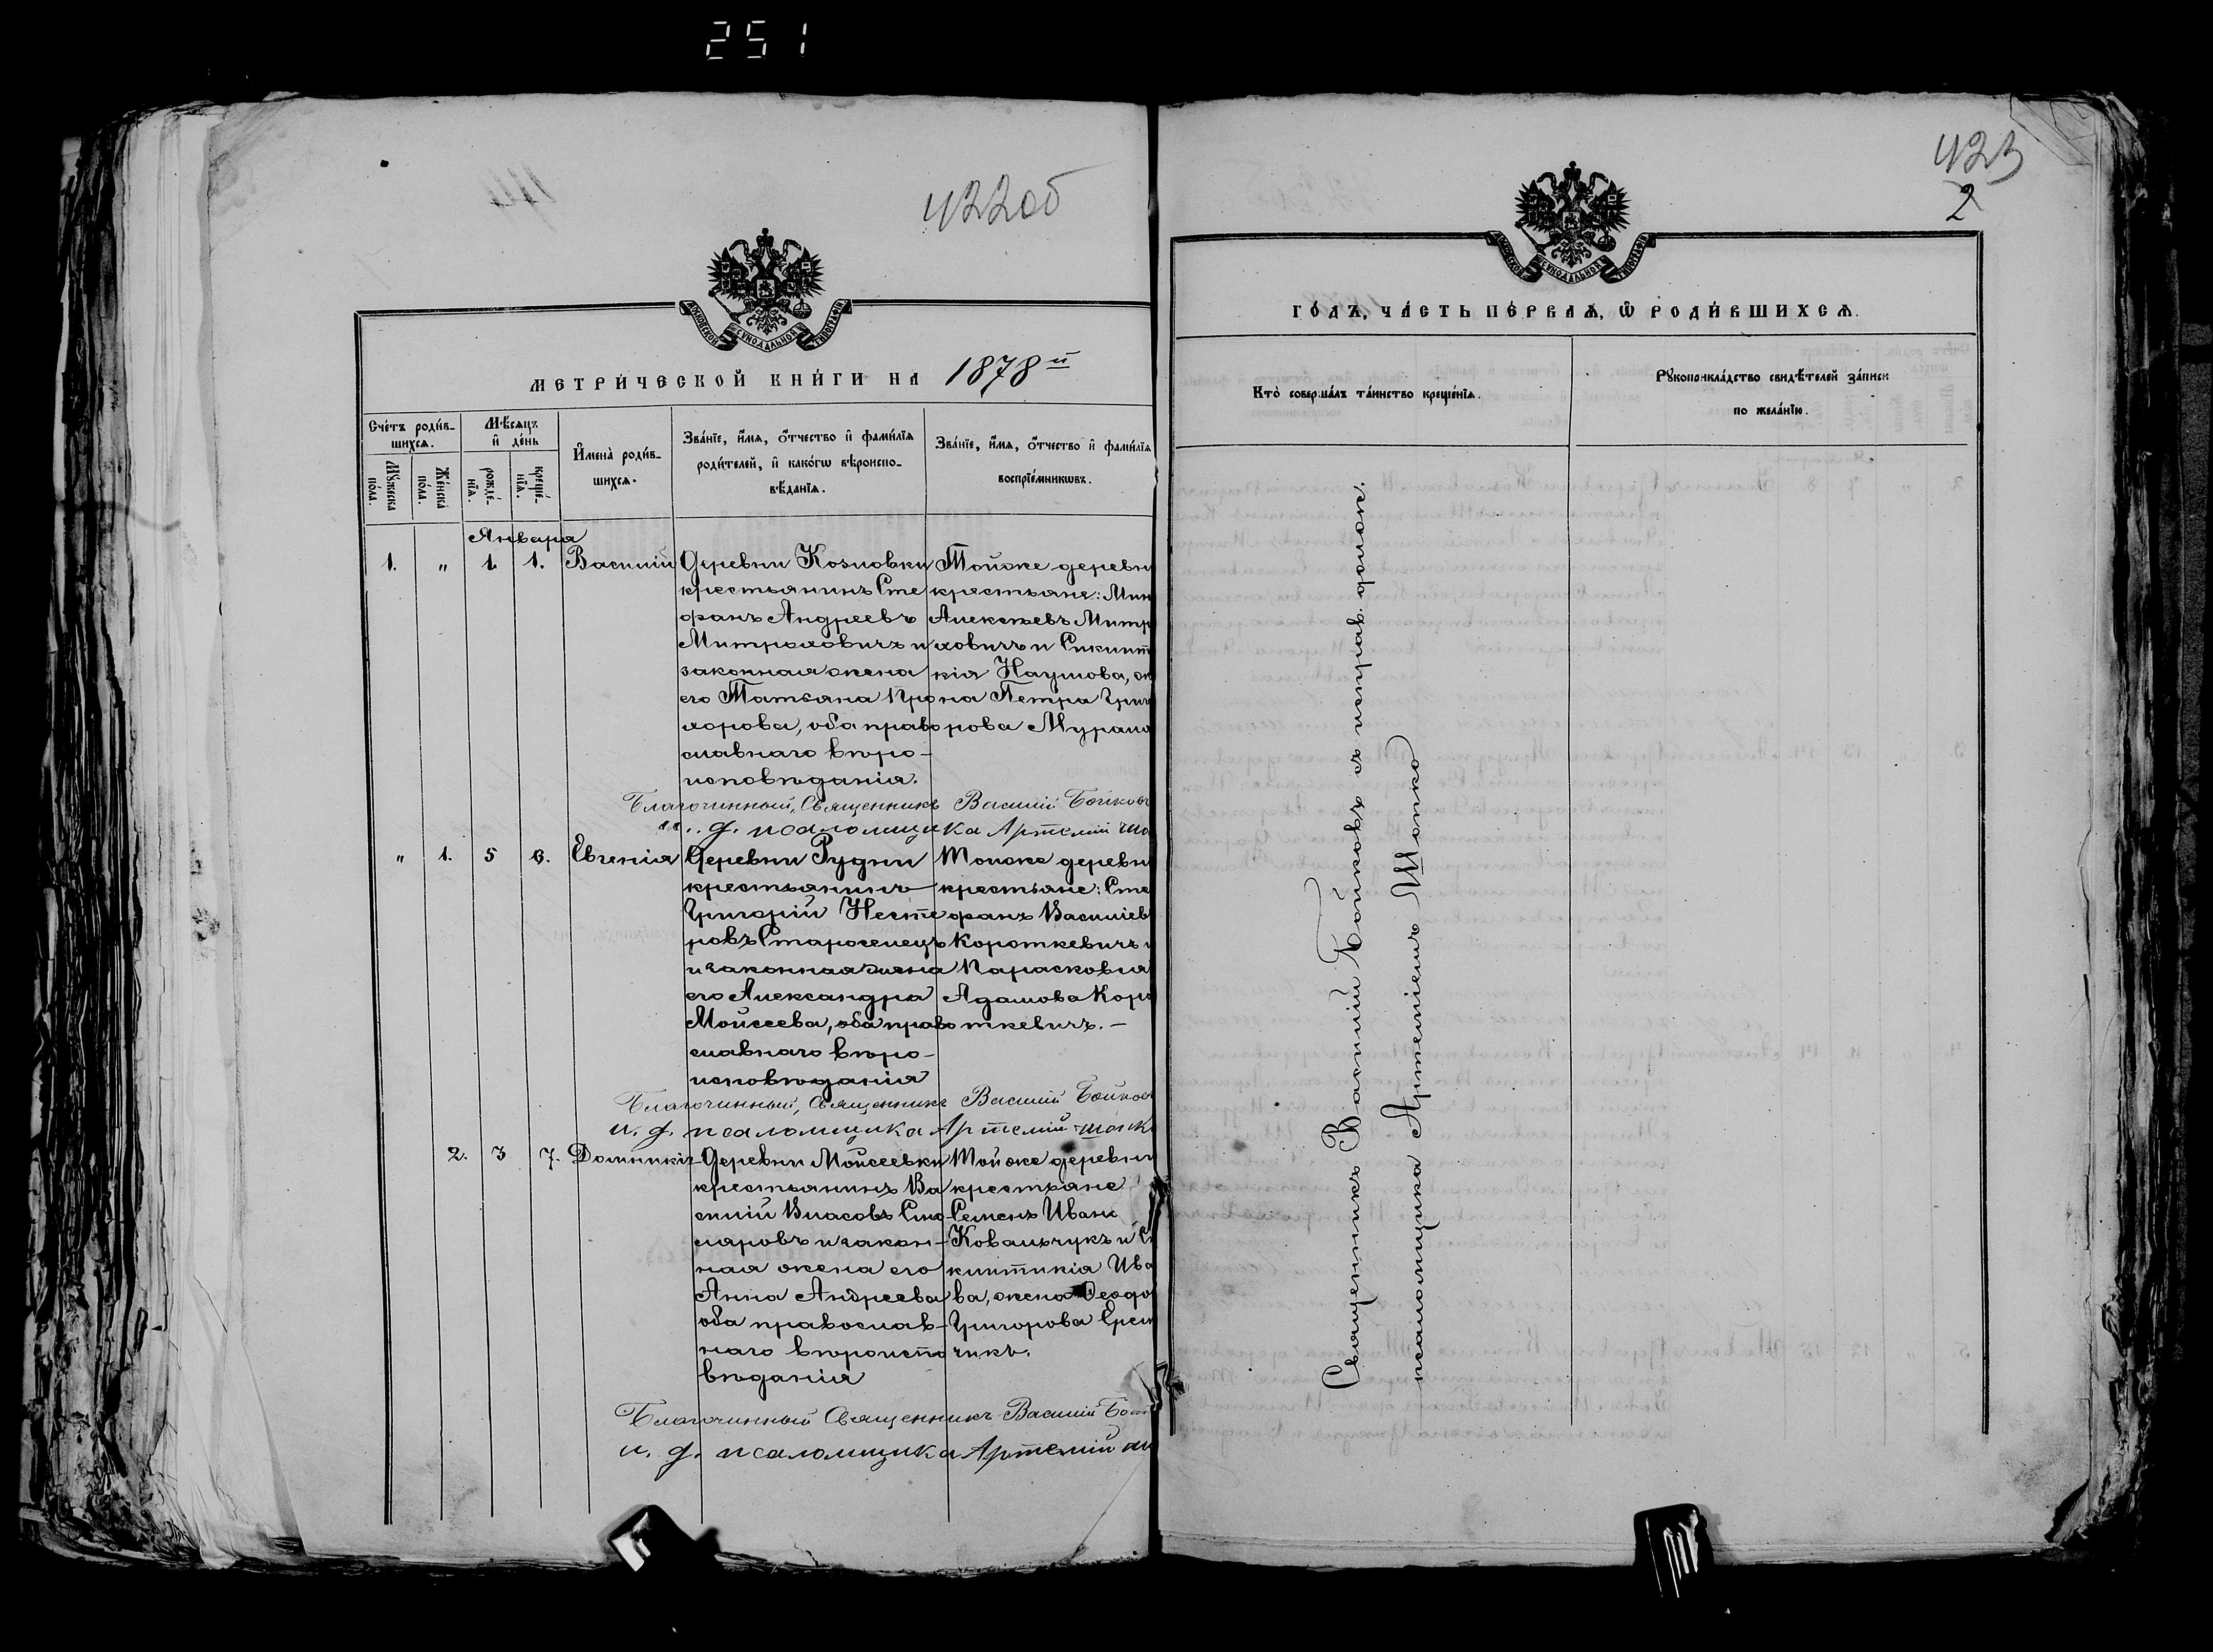 251
422об
МОСКОВСКОЙ СѴНОДАЛЬНОЙ ТИПОГРАФІИ
МЕТРИ́ЧЕСКОЙ КНИ́ГИ НА 1878й
Сче́тъ роди́в-
шихся.
Мѣ́сяцъ
и҆ де́нь
Мꙋ́жеска
по́ла.
Же́нска
по́ла.
рожде́-
нїя.
креще́-
нїя.
И҆мена̀ роди́в-
шихся.
Зва́нїе, и҆́мя, ѻ҆́тчество и҆ фами́лїя
роди́телей, и҆ како́гѡ вѣроиспо-
вѣ́данїя.
Зва́нїе, и҆́мя, ѻ҆́тчество и҆ фами́лїя
воспрїе́мникѡвъ.
Января
1. " 1. 1. Василій
Деревни Козловки
крестьянинъ Сте
фанъ Андреевъ
Митраховичъ и
законная жена
его Татьяна Про
хорова, оба право
славнаго вѣро-
исповѣданія.
Тойже деревн
крестьяне: Мин
Алексѣевъ Митр
ховичъ и Сиклит
кія Наумова, же
на Петра Григ
орова Мураш
Благочинный, Священникъ Василій Бойковъ
и. д. псаломщика Артемій Шо
" 1. 5 6. Евгенія
Деревни Рудни
крестьянинъ
Григорій Несте
ровъ Староселецъ
и законная жена
его Александра
Мойсеева, оба право
славнаго вѣро-
исповѣданія
Тойже деревн
крестьяне: Сте
фанъ Василіев
Короткевичъ и
Парасковія
Адамова Коро
ткевичъ.-
Благочинный, Священникъ Василій Бойков
и. д. псаломщика Артемій Шонк
2. 3 7. Домникія
Деревни Мойсеевки
крестьянинъ Ва
силій Власовъ Сто
ляровъ и закон-
ная жена его
Анна Андреева
оба православ-
наго вѣроиспо
вѣданія
Тойже деревни
крестьяне
Семенъ Иван
Ковальчукъ и С
клитикія Ива
ва, жена Ѳеодо
Григорова Ерем
чикъ.
Благочинный Священникъ Василій Бой
и. д. псаломщика Артемій Ш
423
2
МОСКОВСКОЙ СѴНОДАЛЬНОЙ ТИПОГРАФІИ
ГО́ДЪ, ЧА́СТЬ ПЕ́РВАЯ, Ѡ҆ РОДИ́ВШИХСЯ.
Кто̀ соверша́лъ та́инство креще́нїя.
Рꙋкоприкла́дство свидѣ́телей за́писи
по жела́нїю.
Священникъ Василій Бойковъ съ исправ. должн.
псаломщика Артеміемъ Шонко